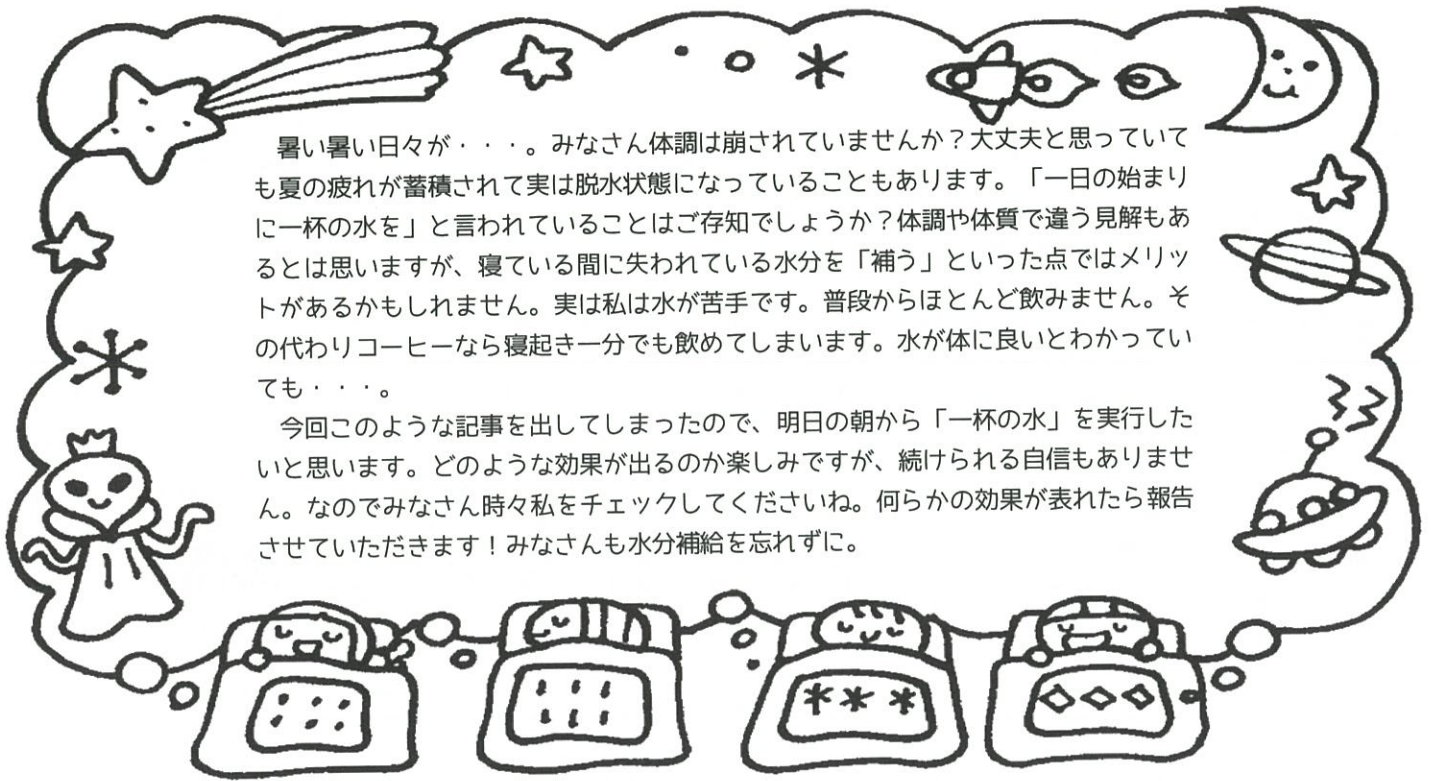 暑い暑い日々が・・・。みなさん体調は崩されていませんか？大丈夫と思っていて
も夏の疲れが蓄積されて実は脱水状態になっていることもあります。「一日の始まり
に一杯の水を」と言われていることはご存知でしょうか？体調や体質で違う見解もあ
るとは思いますが、寝ている間に失われている水分を「補う」といった点ではメリッ
トがあるかもしれません。実は私は水が苦手です。普段からほとんど飲みません。そ
の代わりコーヒーなら寝起き一分でも飲めてしまいます。水が体に良いとわかってい
ても・・・。
今回このような記事を出してしまったので、明日の朝から「一杯の水」を実行した
いと思います。どのような効果が出るのか楽しみですが、続けられる自信もありませ
ん。なのでみなさん時々私をチェックしてくださいね。何らかの効果が表れたら報告
させていただきます！みなさんも水分補給を忘れずに。